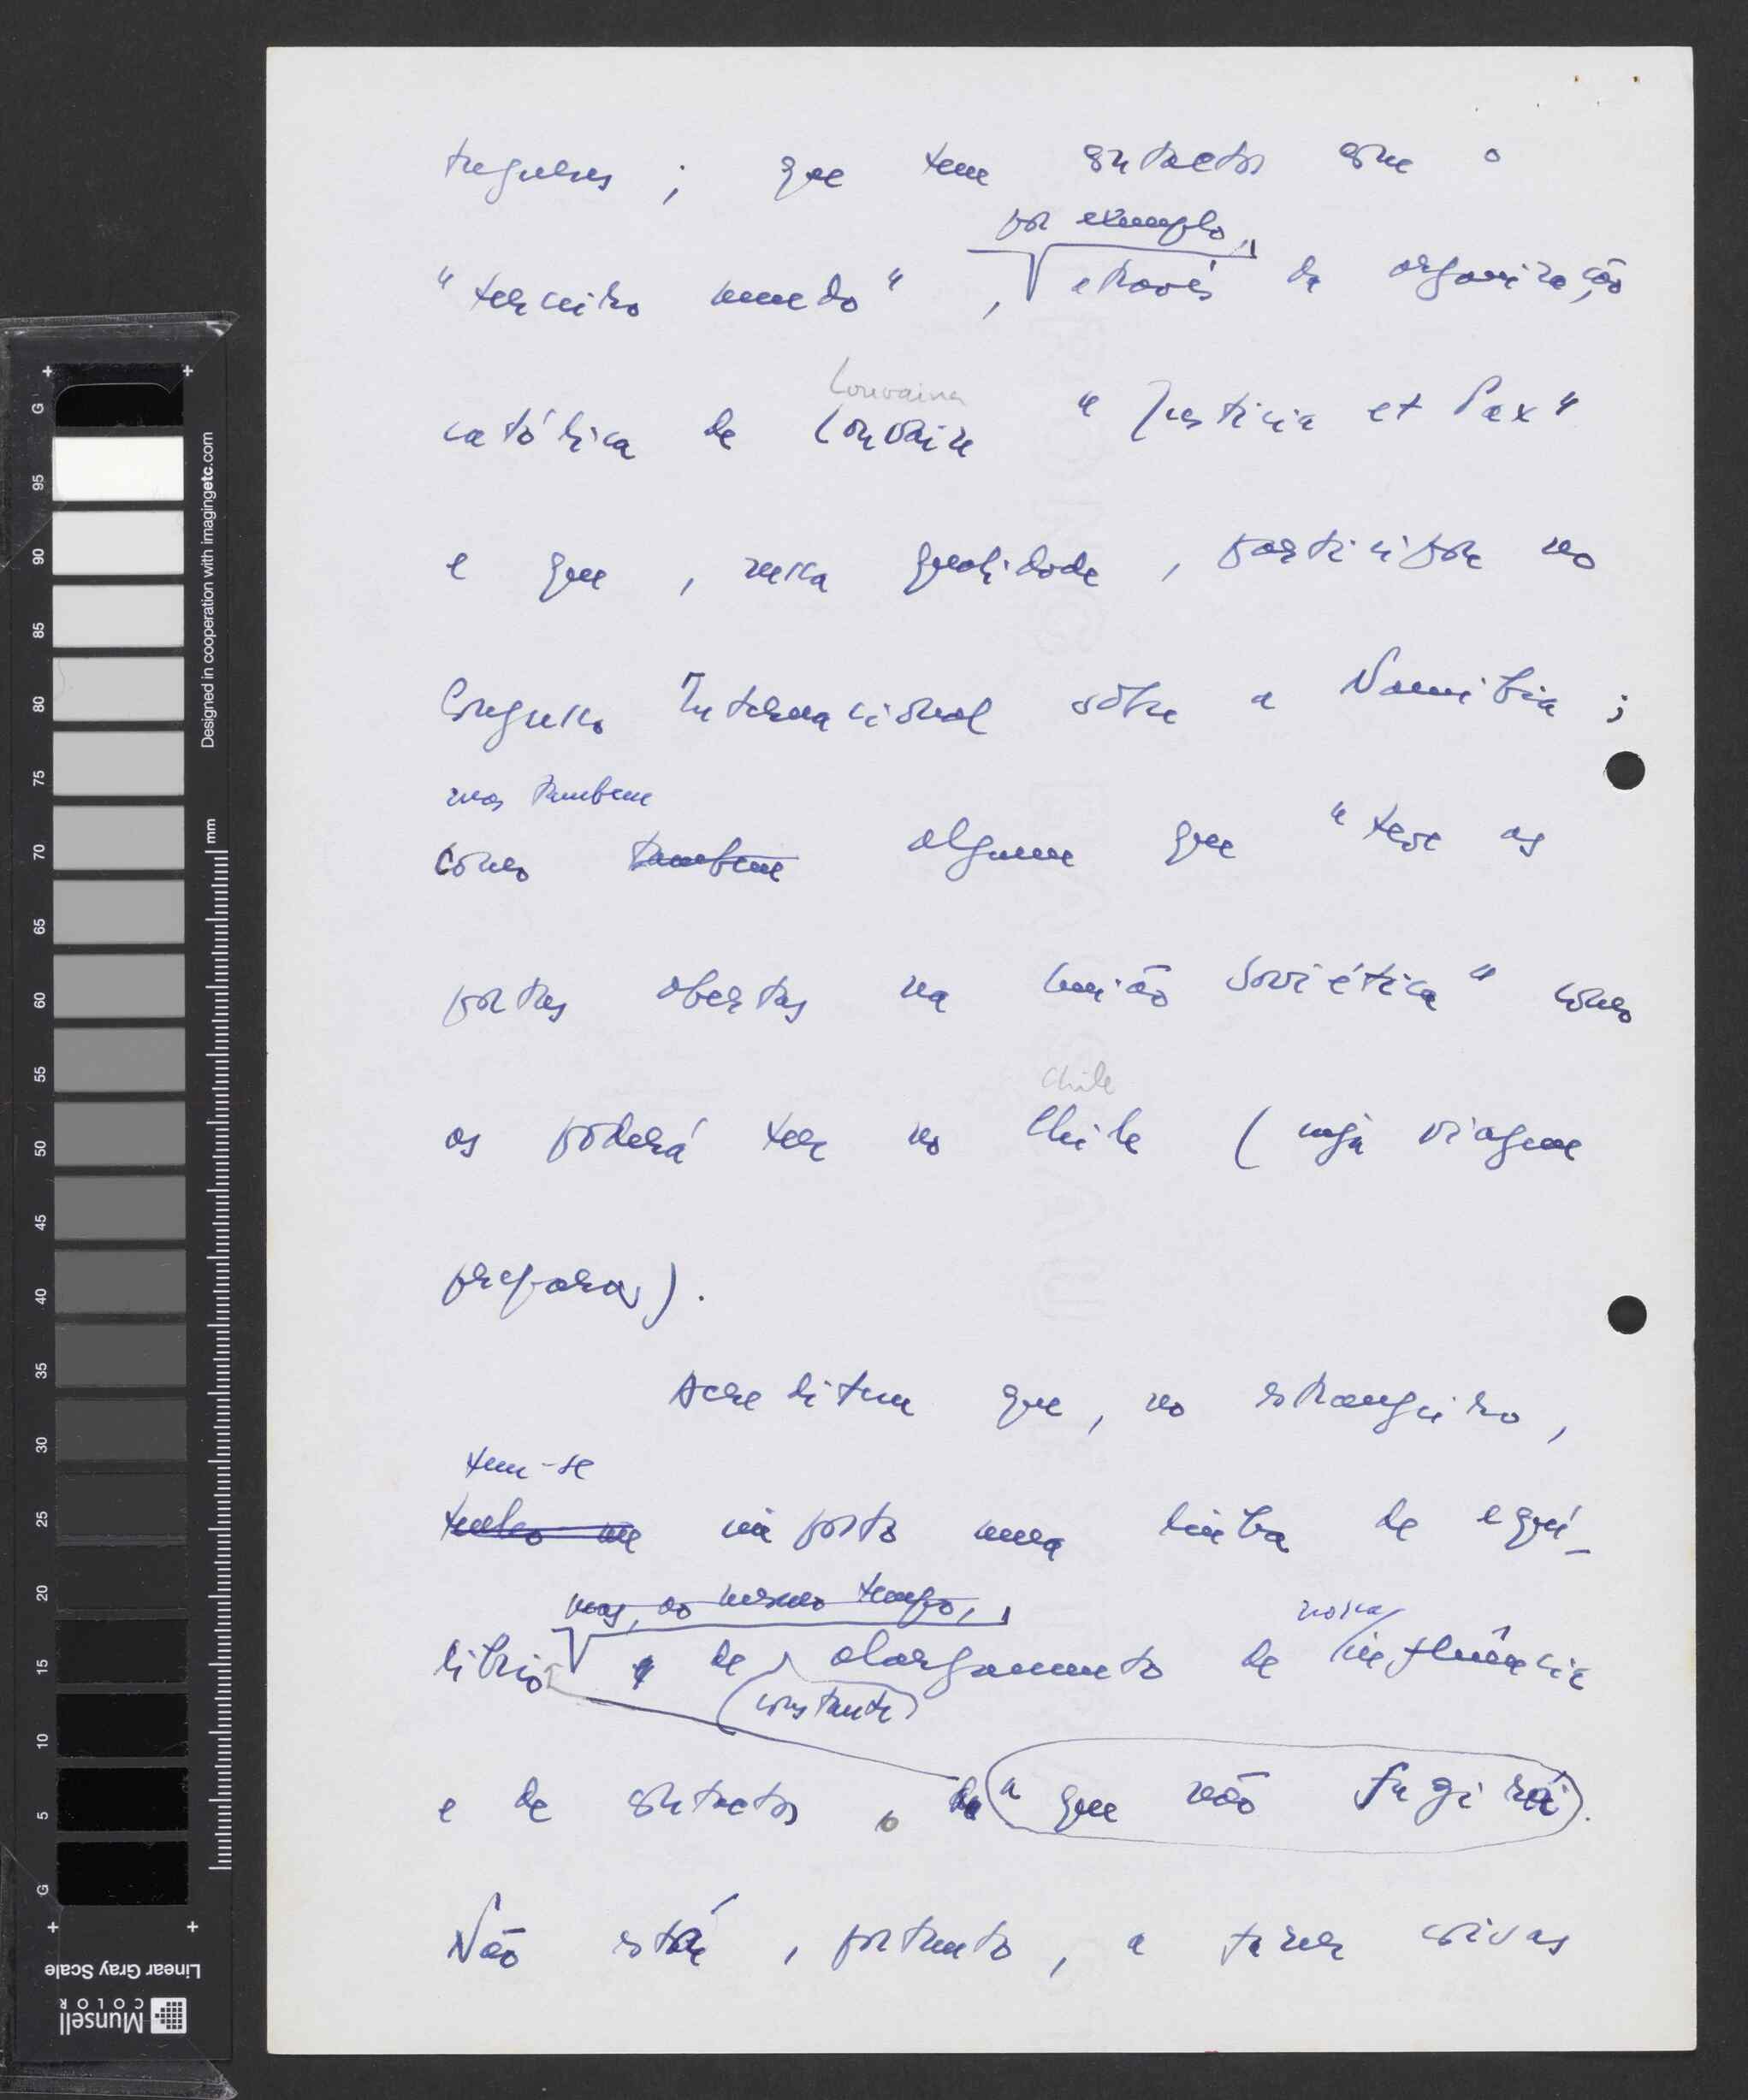 que tem contactos com o
por exemplo,
"terceiro mundo", através da organização
Louvaina
católica de Louvain "Justicia et Pax"
e que, nessa qualidade, participou no
Congresso Internacional sôbre a Namíbia;
mas tambem
como tambem alguem que "teve as
portas abertas na União Soviética" como
as poderá ter no Chile
Chile (cuja viagem
prepara).
Acreditem que, no estrangeiro,
tem-se
tenho me imposto uma linha de equi-
mas, ao mesmo tempo,
líbrio e de alargamento de influência
nossa
(constante)
e de contactos, a que não fugirá.
Não está, portanto, a fazer coisas
G
95
90
85
80
75
70
65
60
55
50
45
40
35
30
25
20
15
10
5
G
mm
Designed in cooperation with imagingetc.com
Linear Gray Scale
Munsell
COLOR